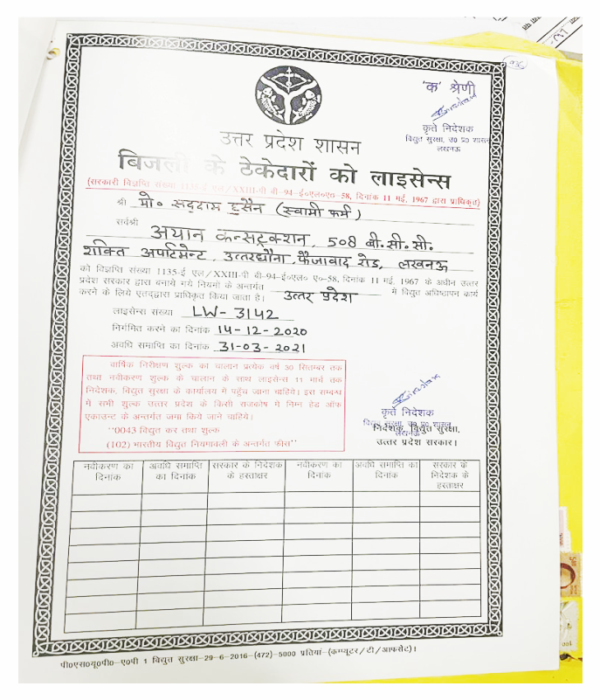 'क' श्रेणी
कृते निदेशक
विद्युत सुरक्षा, उ0 प्र0 शासन
लखनऊ
उत्तर प्रदेश शासन
बिजली के ठेकेदारों को लाइसेन्स
(सरकारी विज्ञप्ति संख्या 1135-ई एल/XXIII-पी बी-94-ई०एल०ए०-58, दिनांक 11 मई, 1967 द्वारा प्राधिकृत)
श्री मो० सद्दाम हुसैन (स्वामी फर्म)
सर्वश्री अयान कन्सट्रक्शन, 508 बी.सी.सी.
शक्ति अपार्टमेन्ट, उत्तरधौना, फैजाबाद रोड, लखनऊ
को विज्ञप्ति संख्या 1135-ई एल/XXIII-पी बी-94-ई०एल० ए०-58, दिनांक 11 मई, 1967 के अधीन उत्तर
प्रदेश सरकार द्वारा बनाये गये नियमों के अन्तर्गत उत्तर प्रदेश में विद्युत अधिष्ठापन कार्य
करने के लिये एतद्द्वारा प्राधिकृत किया जाता है।
लाइसेन्स संख्या LW-3142
निर्गमित करने का दिनांक 14-12-2020
अवधि समाप्ति का दिनांक 31-03-2021
वार्षिक निरीक्षण शुल्क का चालान प्रत्येक वर्ष 30 सितम्बर तक
तथा नवीकरण शुल्क के चालान के साथ लाइसेन्स 11 मार्च तक
निदेशक, विद्युत सुरक्षा के कार्यालय में पहुँच जाना चाहिये। इस सम्बन्ध
में सभी शुल्क उत्तर प्रदेश के किसी राजकोष में निम्न हेड ऑफ
एकाउन्ट के अन्तर्गत जमा किये जाने चाहिये।
"0043 विद्युत कर तथा शुल्क
(102) भारतीय विद्युत नियमावली के अन्तर्गत फीस"
कृते निदेशक
विद्युत सुरक्षा, उ0 प्र0 शासन
लखनऊ
निदेशक, विद्युत सुरक्षा,
उत्तर प्रदेश सरकार।
नवीकरण का दिनांक
अवधि समाप्ति का दिनांक
सरकार के निदेशक के हस्ताक्षर
नवीकरण का दिनांक
अवधि समाप्ति का दिनांक
सरकार के निदेशक के हस्ताक्षर
पी०एस०यू०पी०-ए०पी 1 विद्युत सुरक्षा-29-6-2016-(472)-5000 प्रतियां-(कम्प्यूटर/टी/आफसेट)।